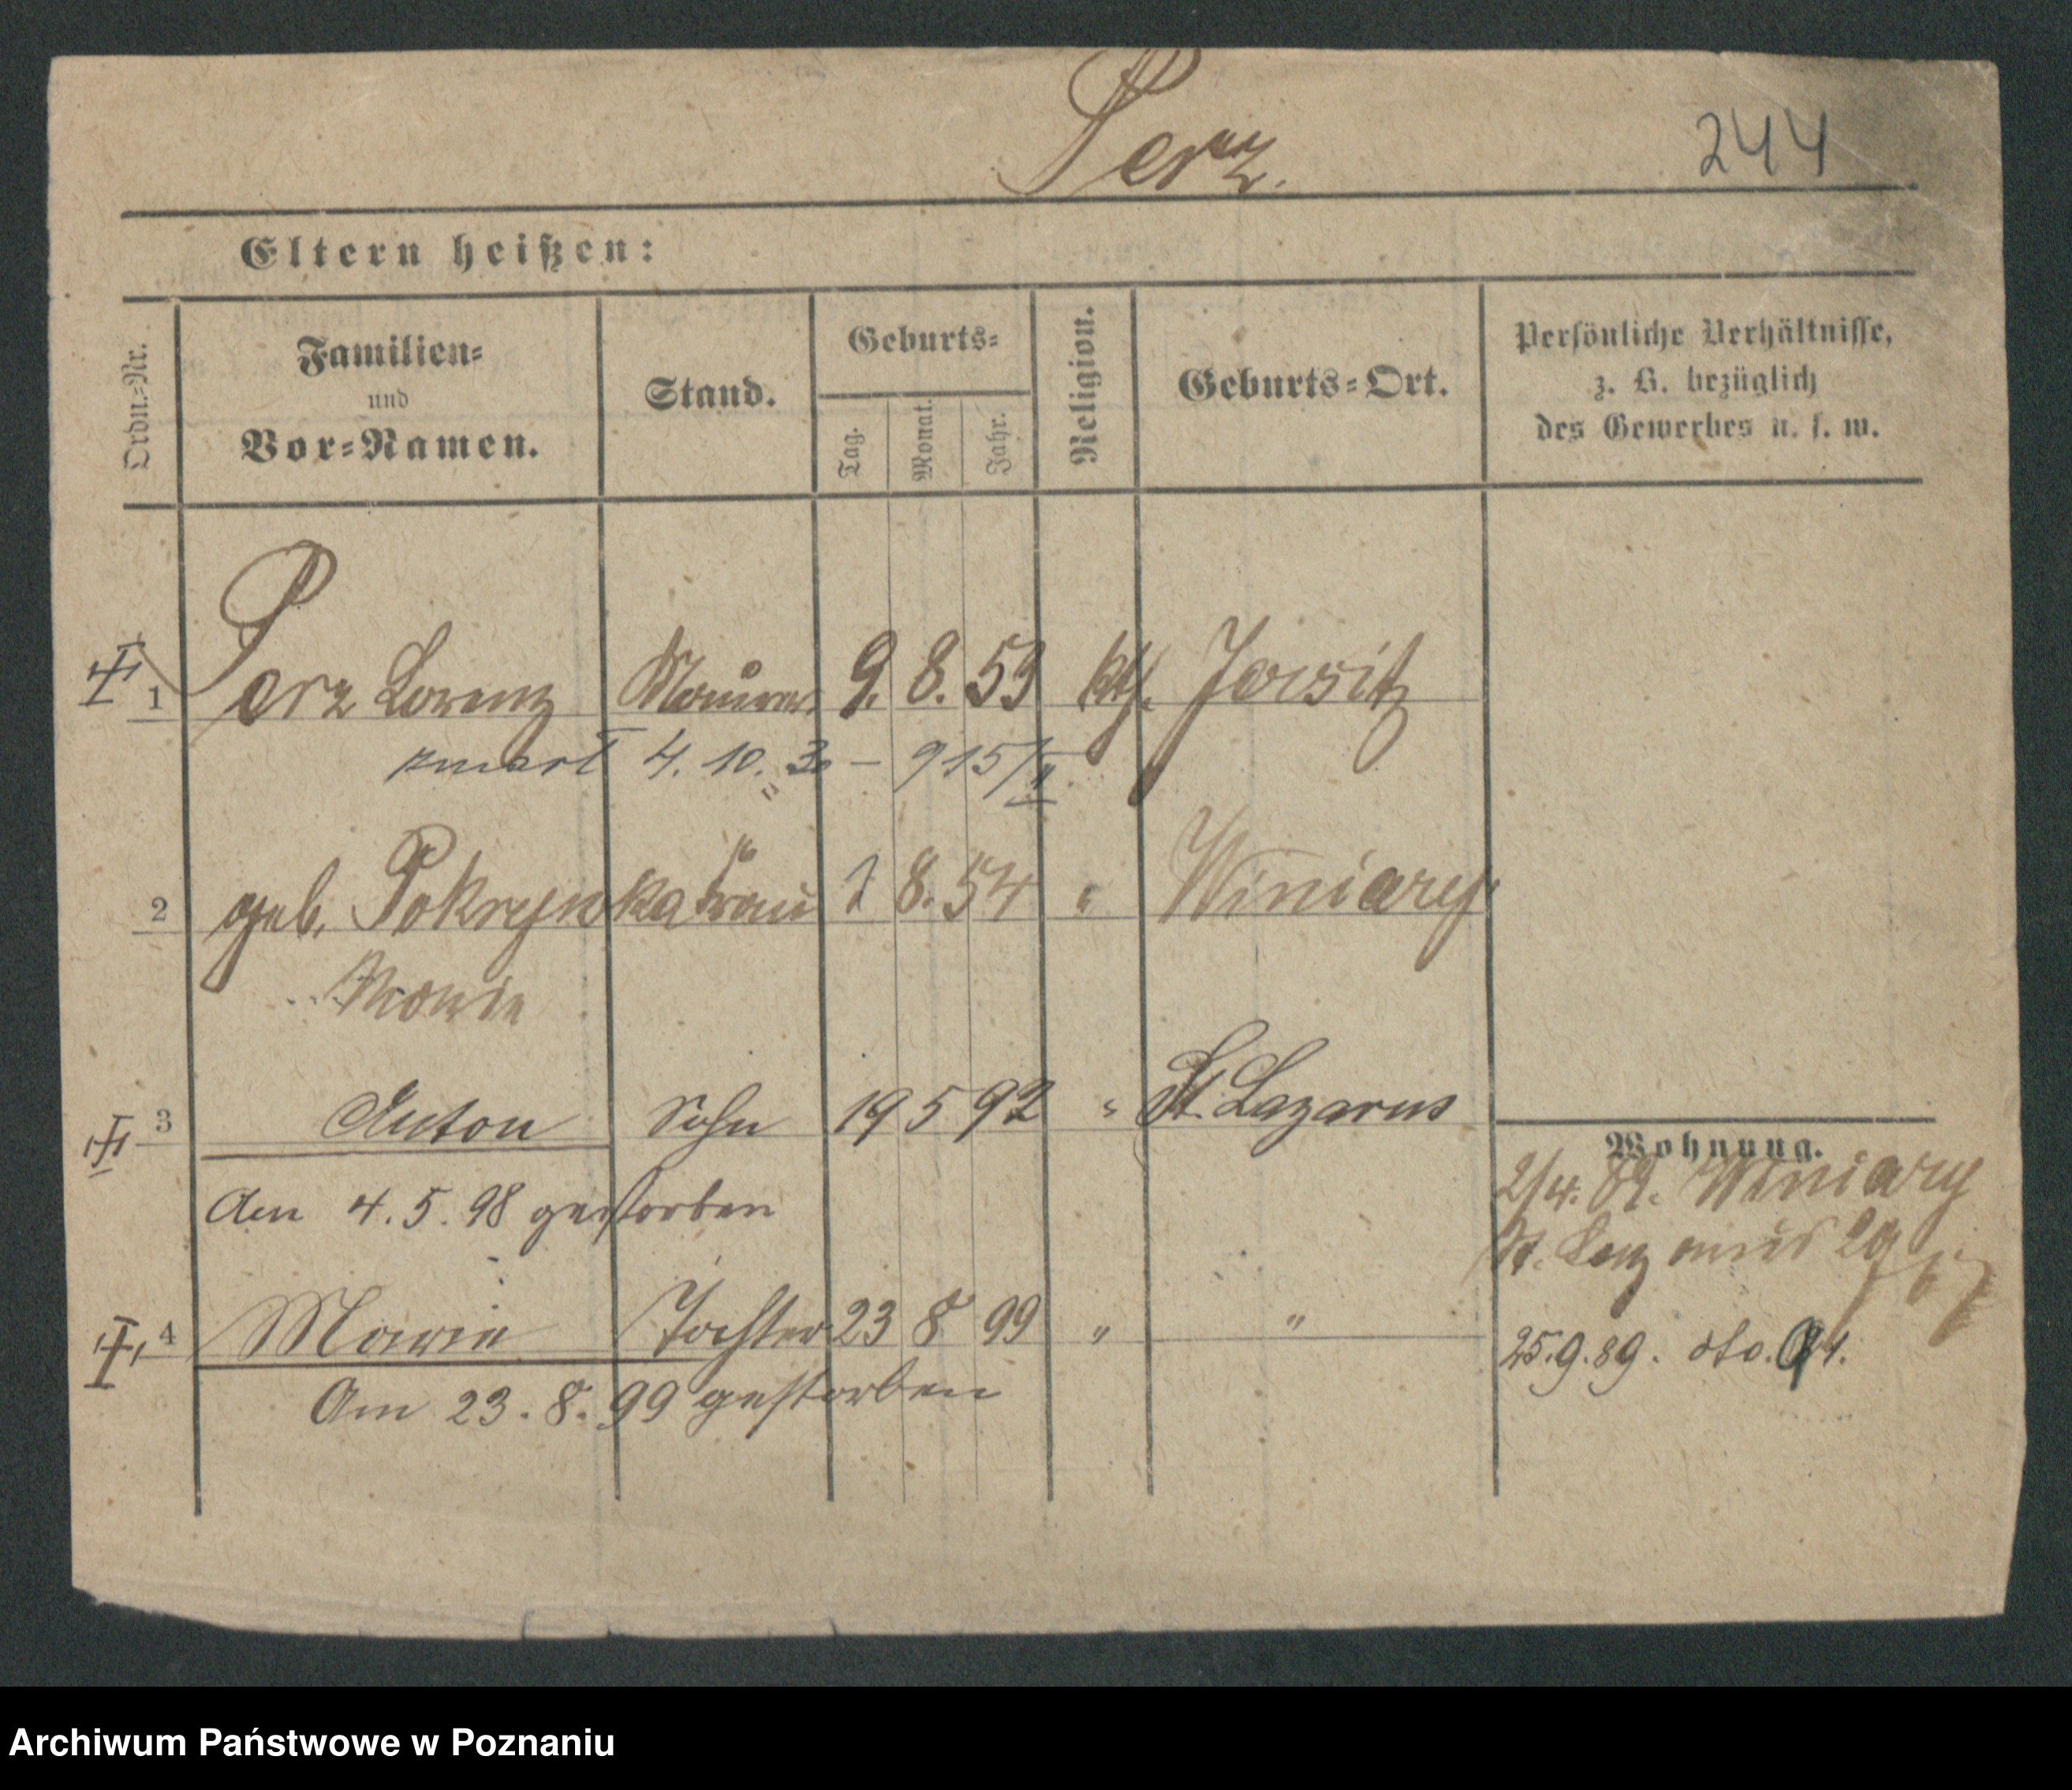 Perz.
244
Eltern heißen:
Ordn.=Nr.
Familien=
und
Vor=Namen.
Stand.
Geburts=
Tag.
Monat.
Jahr.
Religion.
Geburts=Ort.
Persönliche Verhältnisse,
z. B. bezüglich
des Gewerbes u. s. w.
1 Perz Lorenz Maurer 9. 8. 53 kth. Jersitz
zmarł 4. 10. 30 – 915/II
2 geb. Pokrywka Frau 1 8. 54 " Winiary
Marie
3 Anton Sohn 19 5 92 " St. Lazarus
Am 4. 5. 98 gestorben
4 Marie Tochter 23 8 99 " "
Am 23. 8. 99 gestorben
Wohnung.
2/4. 89. Winiary
St. Lazarus
25.9.89. dto.
Archiwum Państwowe w Poznaniu